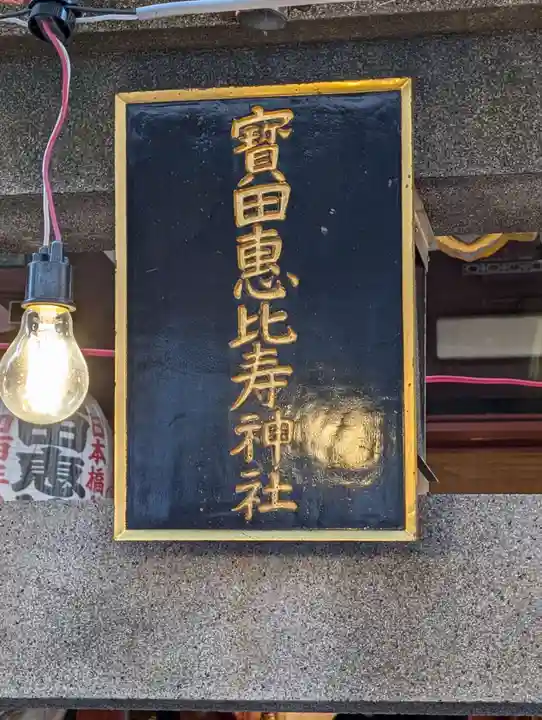 寶田惠比寿神社
日本橋
田恵